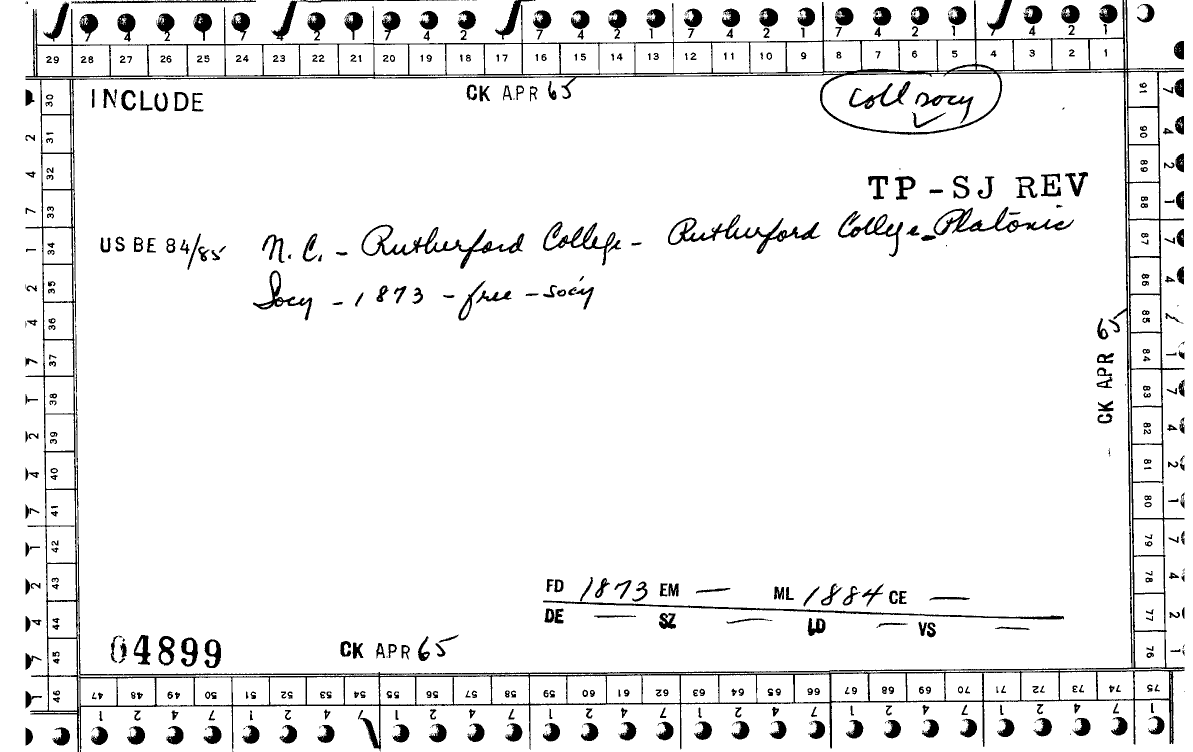 7 4 2 1 7 4 2 1 7 4 2 1 7 4 2 1 7 4 2 1 7 4 2 1 7 4 2 1
29 28 27 26 25 24 23 22 21 20 19 18 17 16 15 14 13 12 11 10 9 8 7 6 5 4 3 2 1
INCLUDE CK APR 65 coll socy
TP-SJ REV
US BE 84/85 N.C. - Rutherford College - Rutherford College - Platonic
Socy - 1873 - free - socy
CK APR 65
FD 1873 EM — ML 1884 CE —
DE — SZ — LD — VS —
04899 CK APR 65
30 31 32 33 34 35 36 37 38 39 40 41 42 43 44 45 46
2 4 7 1 2 4 7 1 2 4 7 1 2 4 7 1
91 90 89 88 87 86 85 84 83 82 81 80 79 78 77 76
7 4 2 1 7 4 2 1 7 4 2 1 7 4 2 1
47 48 49 50 51 52 53 54 55 56 57 58 59 60 61 62 63 64 65 66 67 68 69 70 71 72 73 74 75
1 2 4 7 1 2 4 7 1 2 4 7 1 2 4 7 1 2 4 7 1 2 4 7 1 2 4 7 1